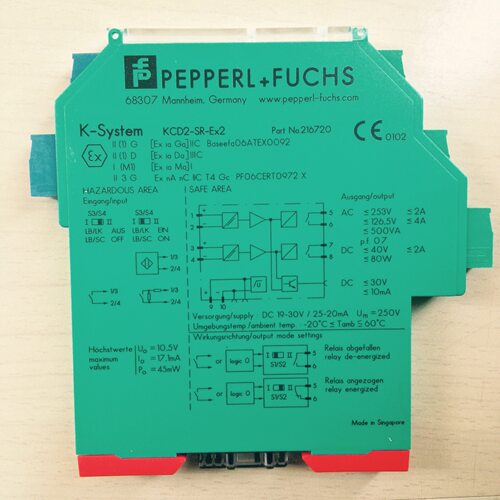 PEPPERL+FUCHS
68307 Mannheim, Germany www.pepperl-fuchs.com
K-System KCD2-SR-Ex2 Part No.216720
CE 0102
Ex
II (1) G [Ex ia Ga] IIC Baseefa06ATEX0092
II (1) D [Ex ia Da] IIIC
I (M1) [Ex ia Ma] I
II 3 G Ex nA nC IIC T4 Gc PF06CERT0972 X
HAZARDOUS AREA
Eingang/input
S3/S4 S3/S4
I II I II
LB/LK AUS LB/LK EIN
LB/SC OFF LB/SC ON
1/3
2/4
1/3 1/3
2/4 2/4
Höchstwerte
maximum
values
Uo = 10.5V
Io = 17.1mA
Po = 45mW
SAFE AREA
1 + 5
2 - 6
3 + 7
4 - 8
9 10
Ausgang/output
AC ≤ 253V ≤ 2A
≤ 126,5V ≤ 4A
≤ 500VA
p.f. 0.7
DC ≤ 40V ≤ 2A
≤ 80W
DC ≤ 30V
≤ 10mA
Versorgung/supply DC 19-30V / 25-20mA Um = 250V
Umgebungstemp./ambient temp. -20°C ≤ Tamb ≤ 60°C
Wirkungsrichtung/output mode settings
or logic 0 I II S1/S2 5 6
Relais abgefallen
relay de-energized
or logic 0 I II S1/S2 5 6
Relais angezogen
relay energized
Made in Singapore